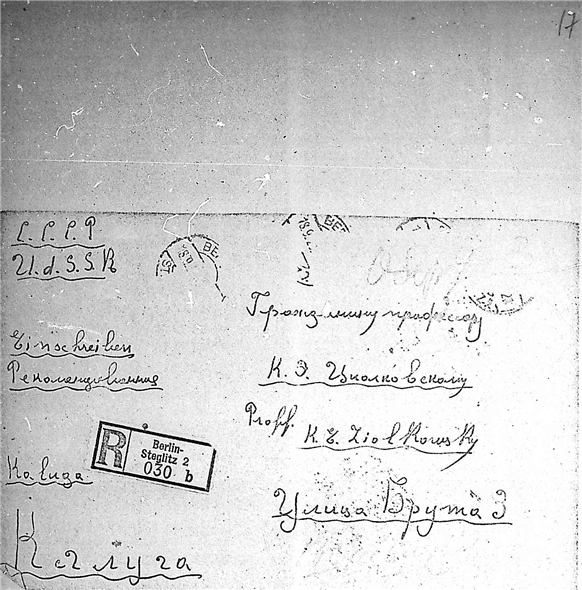 17
С.С.С.Р
U.d.S.S.R
Einschreiben
Рекомандованное
Гражданину профессору
К. Э. Циолковскому
Proff. K. E. Ziolkowsky
R
Berlin-
Steglitz 2
030 b
Kaluga
Улица Брута 3
Калуга